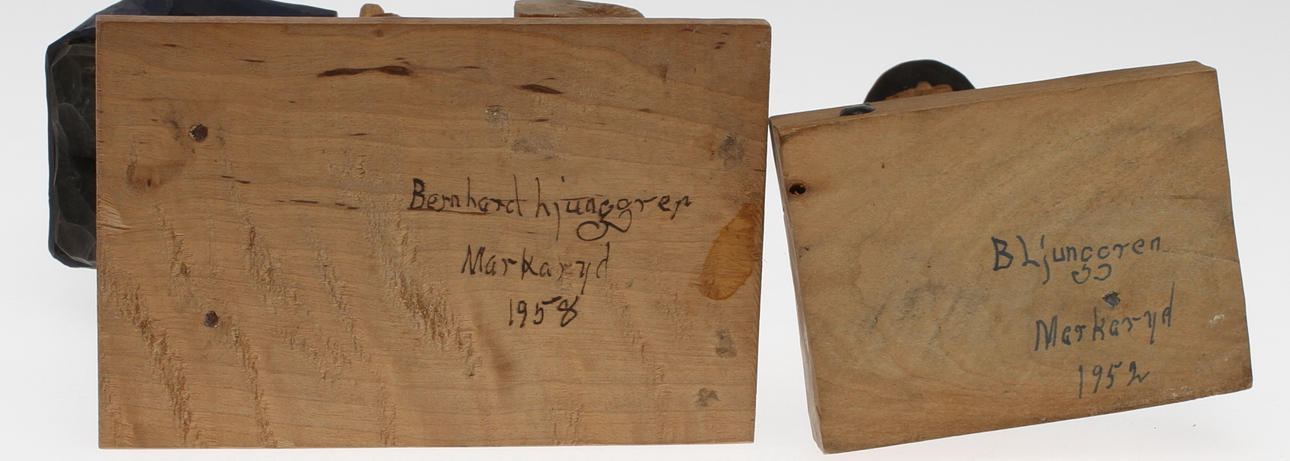 Bernhard Ljunggren
Markaryd
1958
B Ljunggren
Markaryd
1952